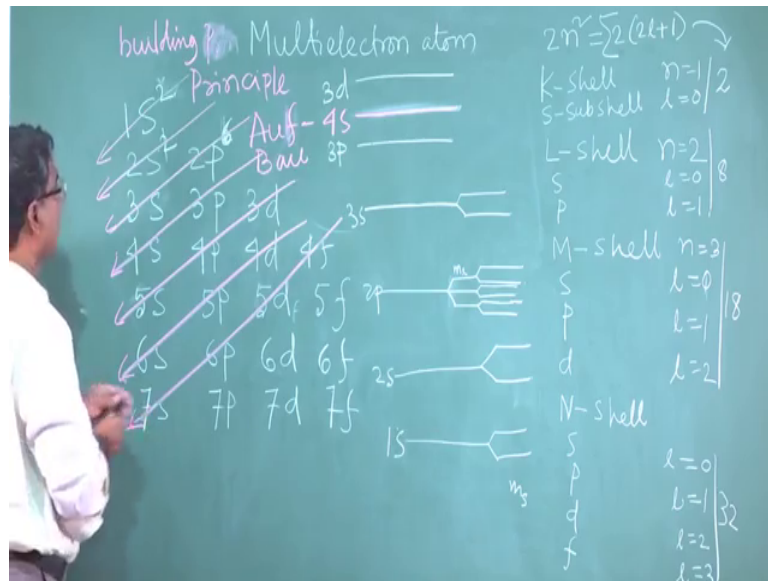 building Multielectron atom
Principle
Auf-
Bau
1s²
2s² 2p⁶
3s 3p 3d
4s 4p 4d 4f
5s 5p 5d 5f
6s 6p 6d 6f
7s 7p 7d 7f
3d
4s
3p
3s
2p
2s
1s
mₗ
mₛ
2n² = Σ2(2l+1)
K-shell n=1 2
S-subshell l=0
L-shell n=2 8
S l=0
P l=1
M-shell n=3 18
S l=0
P l=1
d l=2
N-shell 32
S l=0
P l=1
d l=2
f l=3